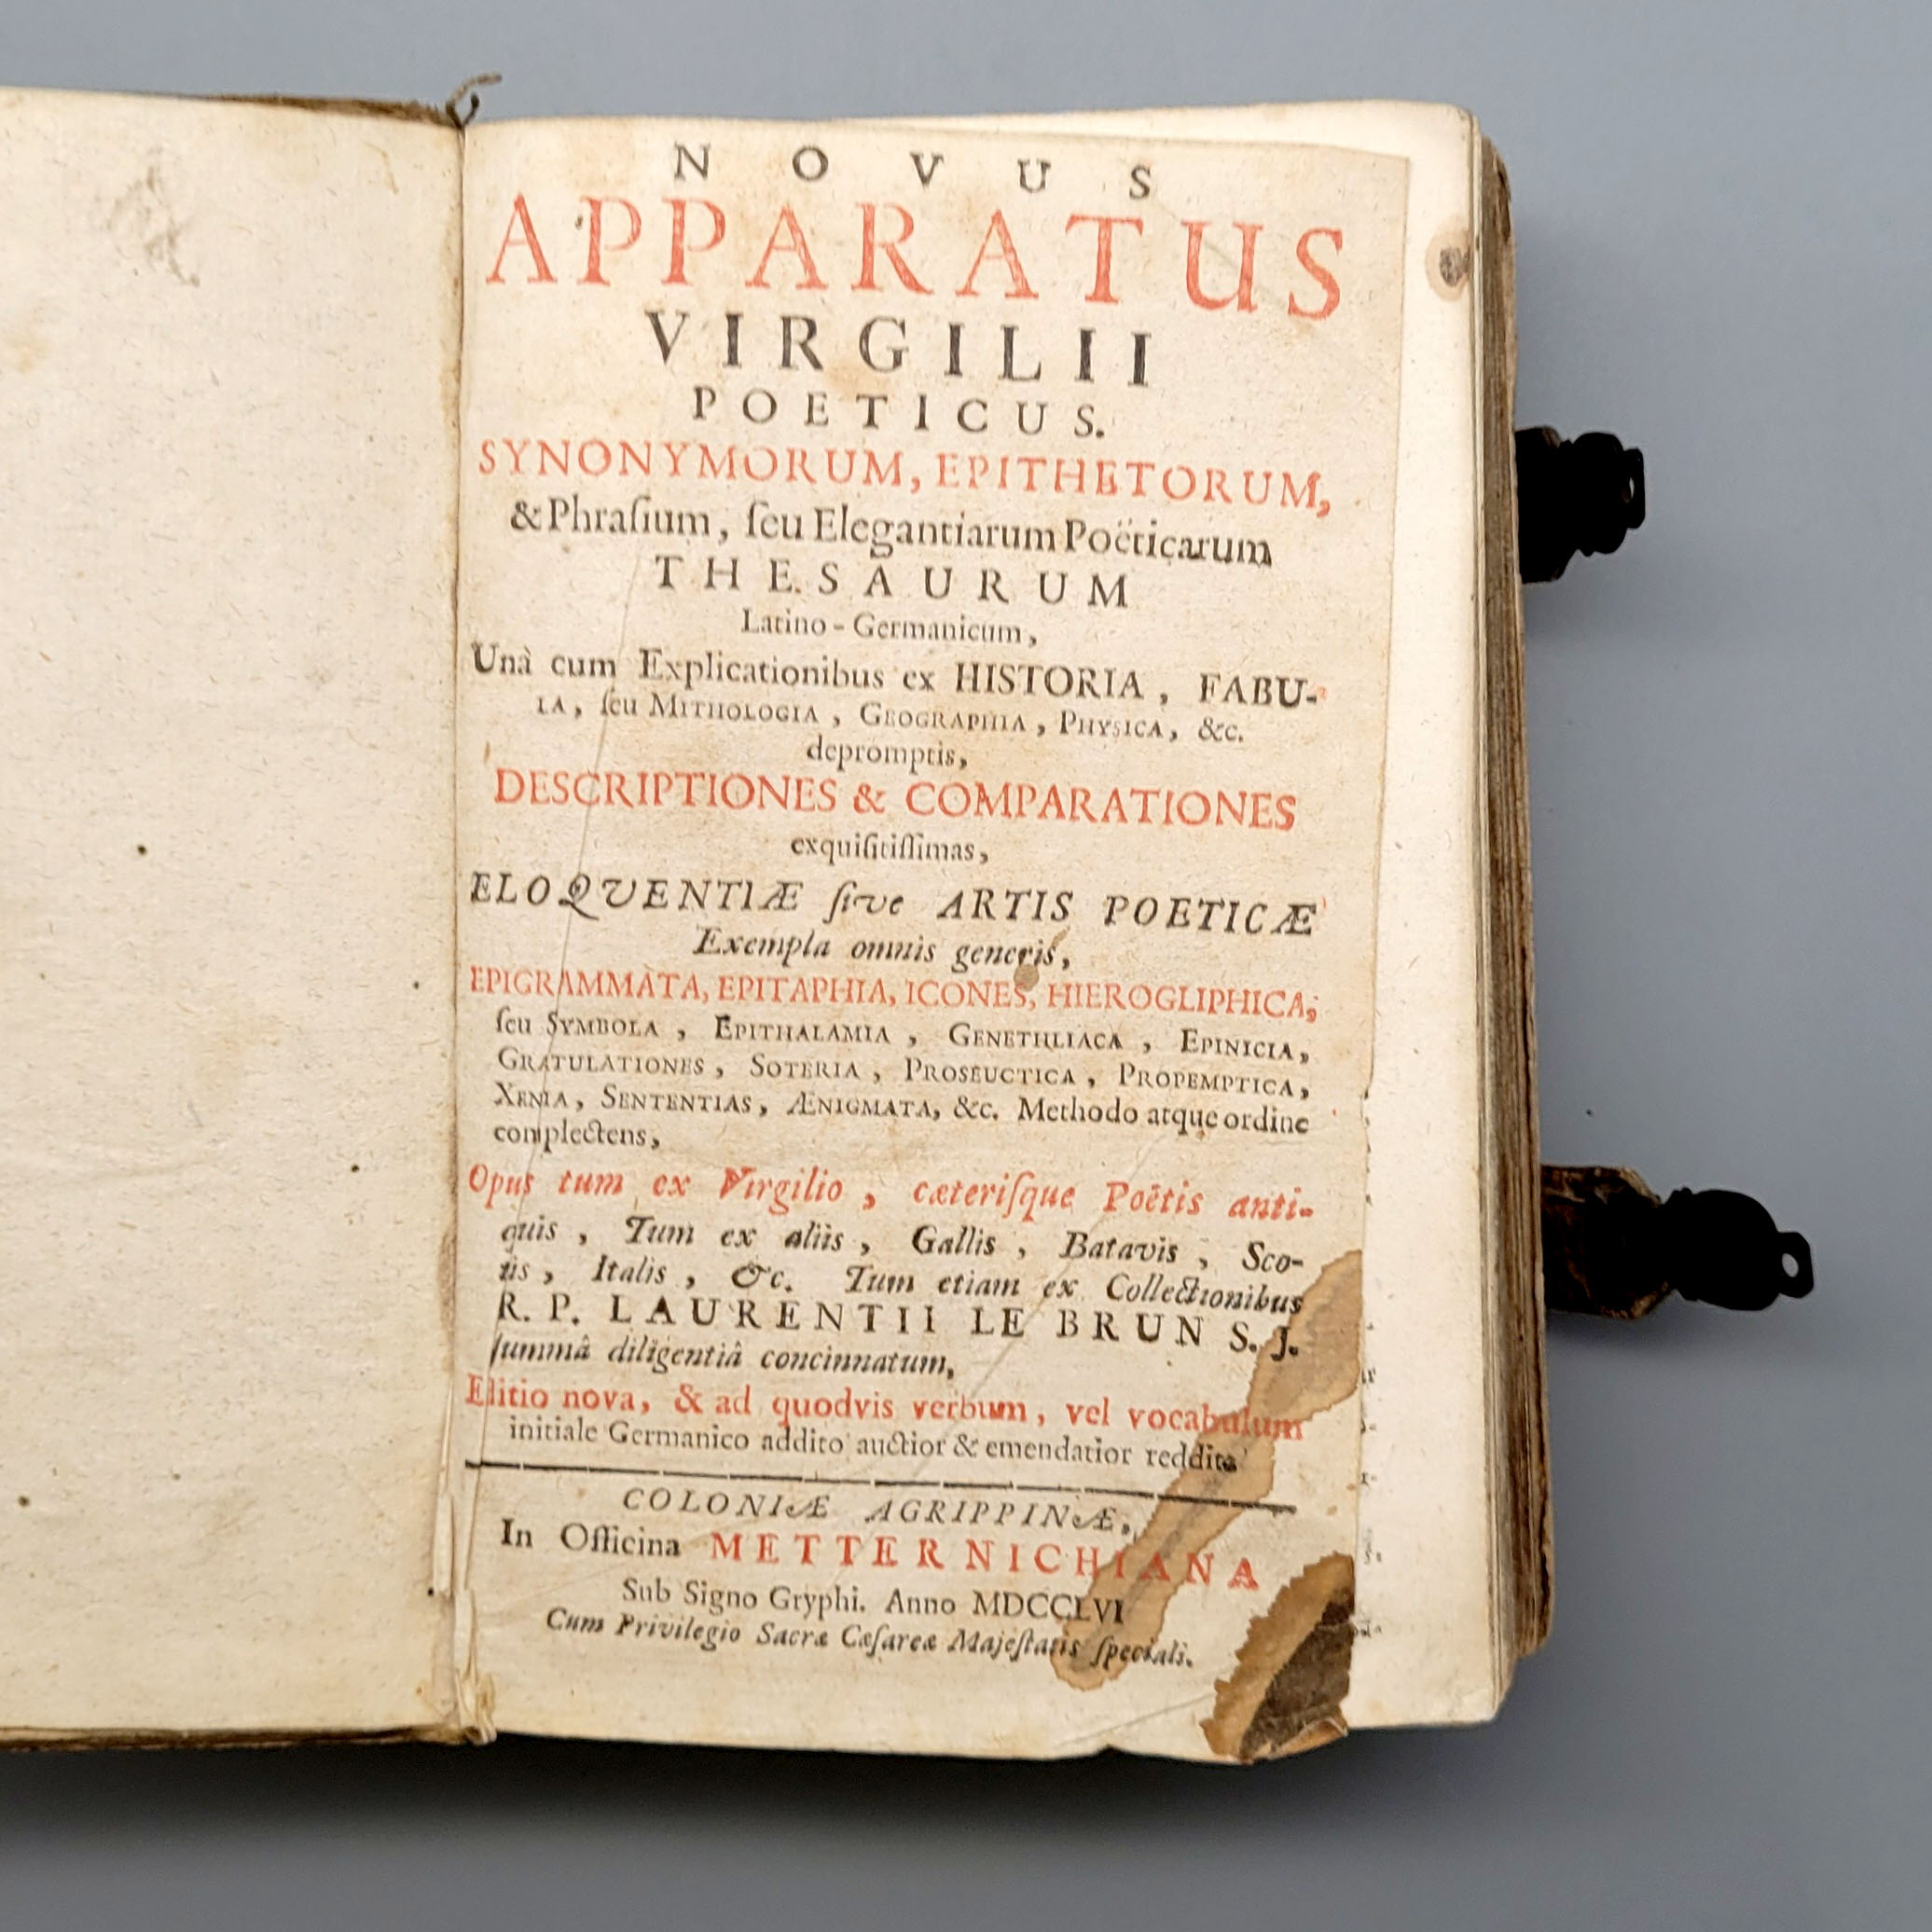 NOVUS
APPARATUS
VIRGILII
POETICUS.
SYNONYMORUM, EPITHETORUM,
& Phraſium, ſeu Elegantiarum Poëticarum
THESAURUM
Latino-Germanicum,
Unà cum Explicationibus ex HISTORIA, FABU-
LA, ſeu MITHOLOGIA, GEOGRAPHIA, PHYSICA, &c.
depromptis,
DESCRIPTIONES & COMPARATIONES
exquiſitiſſimas,
ELOQVENTIÆ ſive ARTIS POETICÆ
Exempla omnis generis,
EPIGRAMMATA, EPITAPHIA, ICONES, HIEROGLIPHICA,
ſeu SYMBOLA, EPITHALAMIA, GENETHLIACA, EPINICIA,
GRATULATIONES, SOTERIA, PROSEUCTICA, PROPEMPTICA,
XENIA, SENTENTIAS, ÆNIGMATA, &c. Methodo atque ordine
complectens,
Opus tum ex Virgilio, cæteriſque Poëtis anti-
quis, Tum ex aliis, Gallis, Batavis, Sco-
tis, Italis, &c. Tum etiam ex Collectionibus
R. P. LAURENTII LE BRUN S. J.
ſummâ diligentiâ concinnatum,
Editio nova, & ad quodvis verbum, vel vocabulum
initiale Germanico addito auctior & emendatior reddita
COLONIÆ AGRIPPINÆ,
In Officina METTERNICHIANA
Sub Signo Gryphi. Anno MDCCLVI
Cum Privilegio Sacræ Cæſareæ Majeſtatis ſpeciali.